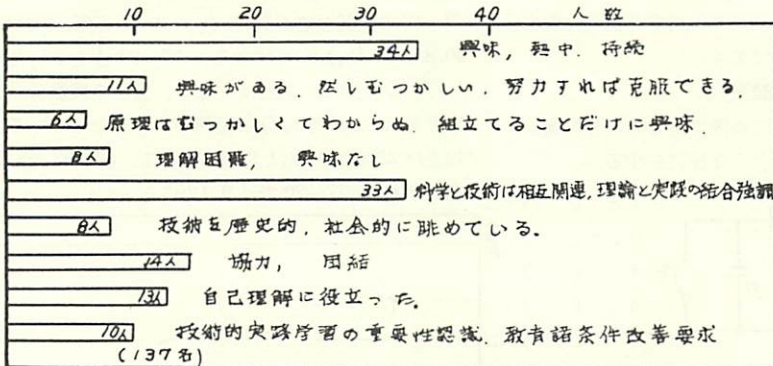 10 20 30 40 人数
34人 興味, 熱中, 持続
11人 興味がある, 然しむつかしい, 努力すれば克服できる.
6人 原理はむつかしくてわからぬ. 組立てることだけに興味.
8人 理解困難, 興味なし
33人 科学と技術は相互関連, 理論と実践の結合強調
8人 技術を歴史的, 社会的に眺めている.
14人 協力, 団結
13人 自己理解に役立った.
10人 技術的実践学習の重要性認識. 教育諸条件改善要求
(137名)